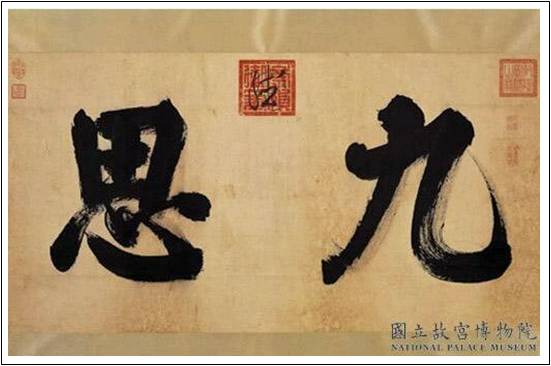 九思
國立故宮博物院
NATIONAL PALACE MUSEUM